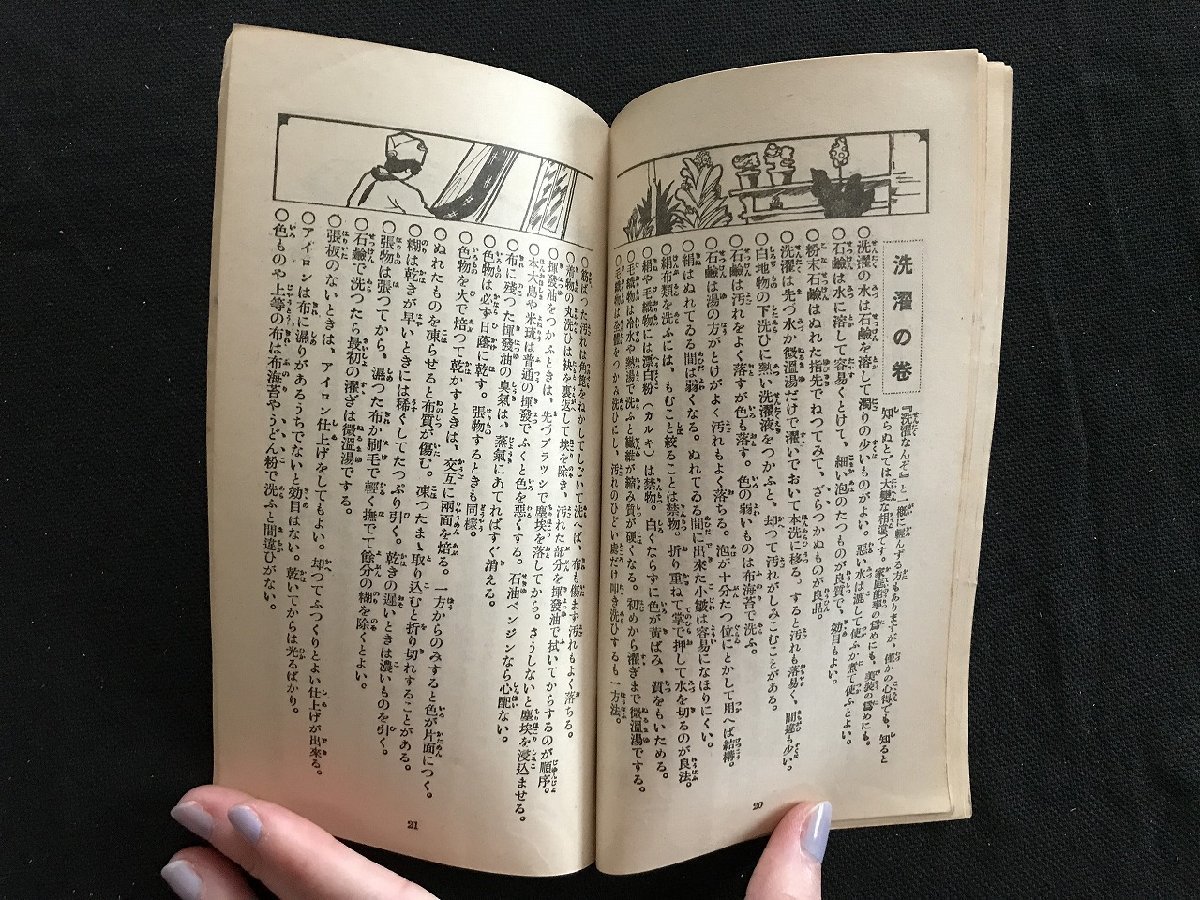 洗濯の卷
『洗濯なんぞ』と一概に輕んずる方もありますが、僅かの心得でも、知ると
知らぬとでは大變な相違です。家庭衞生の爲めにも、美裝の爲めにも。
○洗濯の水は石鹼を溶して濁りの少いものがよい。惡い水は濾して使ふか煮て使ふとよい。
○石鹼は水に溶して容易くとけて、細い泡のたつものが良質で、効目もよい。
○粉末石鹼はぬれた指先でねつてみて、ざらつかぬものが良品。
○洗濯は先づ水か微溫湯だけで濯いでおいて本洗に移る。すると汚れも落易く、間違も少い。
○白地物の下洗ひに熱い洗濯液をつかふと、却つて汚れがしみこむことがある。
○石鹼は汚れをよく落すが色も落す。色の弱いものは布海苔で洗ふ。
○石鹼は湯の方がとけがよく汚れもよく落ちる。泡が十分たつ位にとかして用へば結構。
○絹はぬれてる間は弱くなる。ぬれてる間に出來た小皺は容易になほりにくい。
○絹布類を洗ふには、もむこと絞ることは禁物。折り重ねて掌で押して水を切るのが良法。
○絹や毛織物には漂白粉(カルキ)は禁物。白くならずに色が黃ばみ、質をもいためる。
○毛織物は冷水や熱湯で洗ふと纖維が縮み質が硬くなる。初めから濯ぎまで微溫湯でする。
○毛織物は全體をつかみ洗ひにし、汚れのひどい處だけ叩き洗ひするも一方法。
20
○筋ばつた汚れは角盥をぬかしてしごいて洗へば、布も傷まず汚れもよく落ちる。
○着物の丸洗ひは袂を裏返して埃を除き、汚れた部分を揮發油で拭いてからするのが順序。
○揮發油をつかふときは、先づブラツシで塵埃を落してから。さうしないと塵埃を浸込ませる。
○本大島や米琉は普通の揮發でふくと色を惡くする。石油ベンジンなら心配ない。
○布に殘つた揮發油の臭氣は、蒸氣にあてればすぐ消える。
○色物は必ず日陰に乾す。張物するときも同樣。
○色物を火で焙つて乾かすときは、交互に兩面を焙る。一方からのみすると色が片面につく。
○ぬれたものを凍らせると布質が傷む。凍つたまゝ取り込むと折り切れすることがある。
○糊は乾きが早いときには稀くしてたつぷり引く。乾きの遲いときは濃いものを引く。
○張物は張つてから、濕つた布か刷毛で輕く撫でて餘分の糊を除くとよい。
○石鹼で洗つたら最初の濯ぎは微溫湯でする。
○張板のないときは、アイロン仕上げをしてもよい。却つてふつくりとよい仕上げが出來る。
○アイロンは布に濕りがあるうちでないと効目はない。乾いてからは光るばかり。
○色ものや上等の布は布海苔やうどん粉で洗ふと間違ひがない。
21